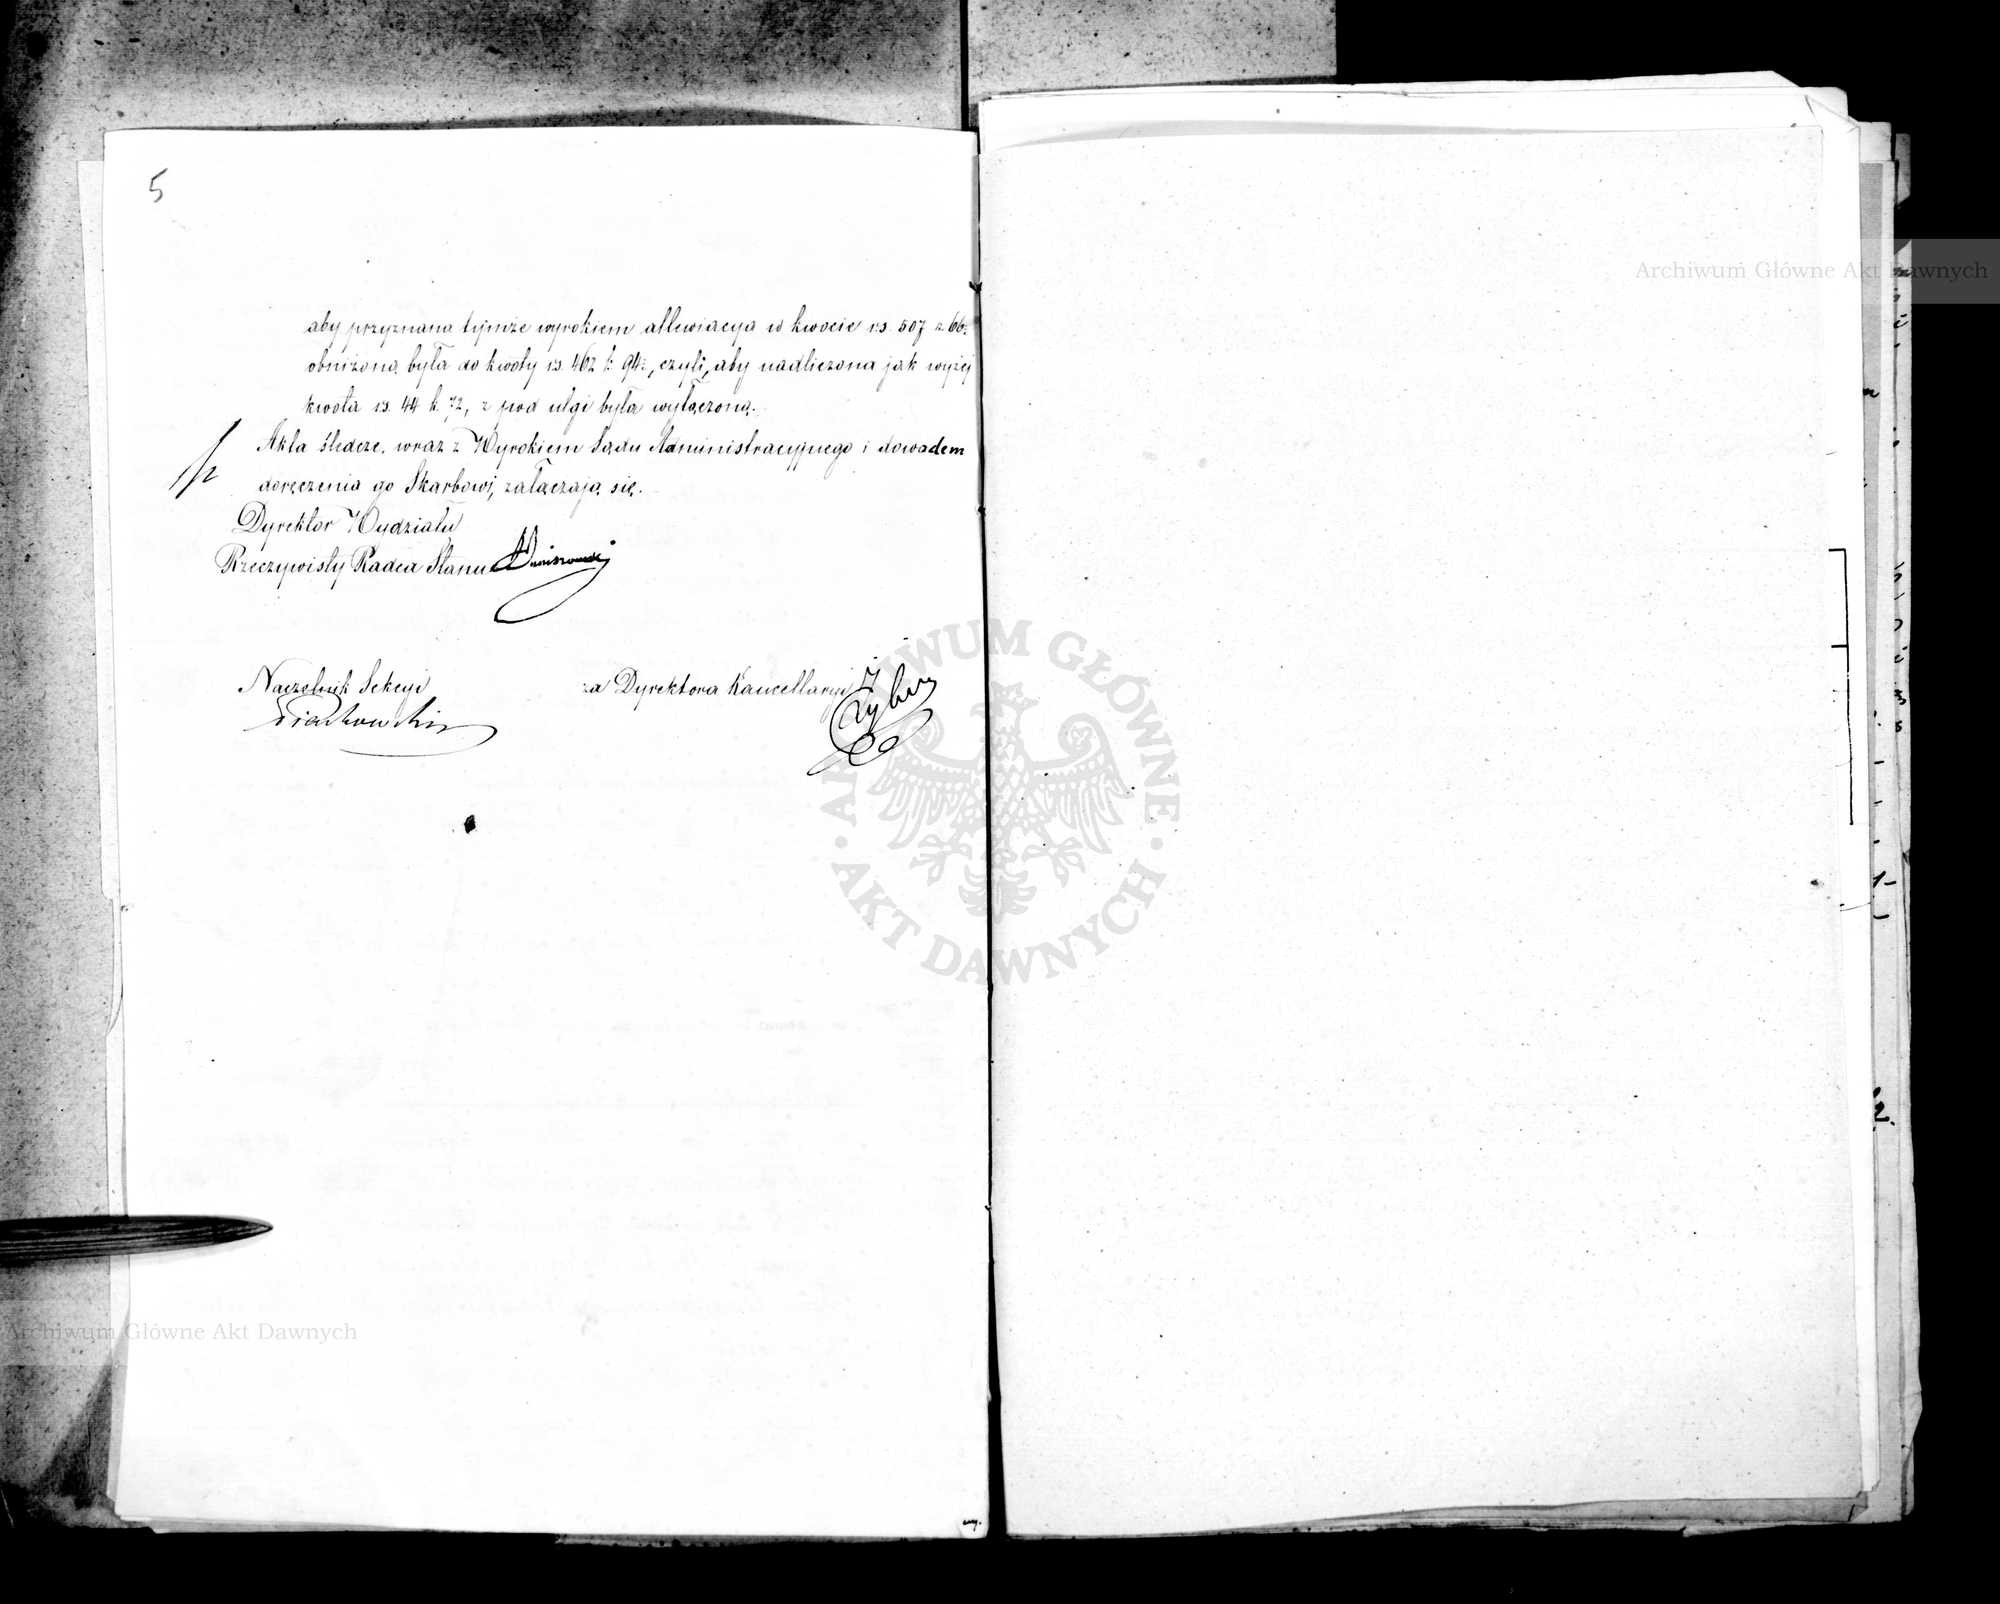 5
aby przyznana tymże wyrokiem allewiacya w kwocie rs. 507 k. 66½
obniżoną była do kwoty rs. 462 k. 94½, czyli, aby nadliczona jak wyżej
kwota rs. 44 k. 72, z pod ulgi była wyłączoną.
Akta śledcze, wraz z Wyrokiem Sądu Administracyjnego i dowodem
doręczenia go Skarbowi, załączają się.
Dyrektor Wydziału
Rzeczywisty Radca Stanu
Naczelnik Sekcyi
za Dyrektora Kancellaryi
Archiwum Główne Akt Dawnych
ARCHIWUM GŁÓWNE AKT DAWNYCH
Archiwum Główne Akt Dawnych